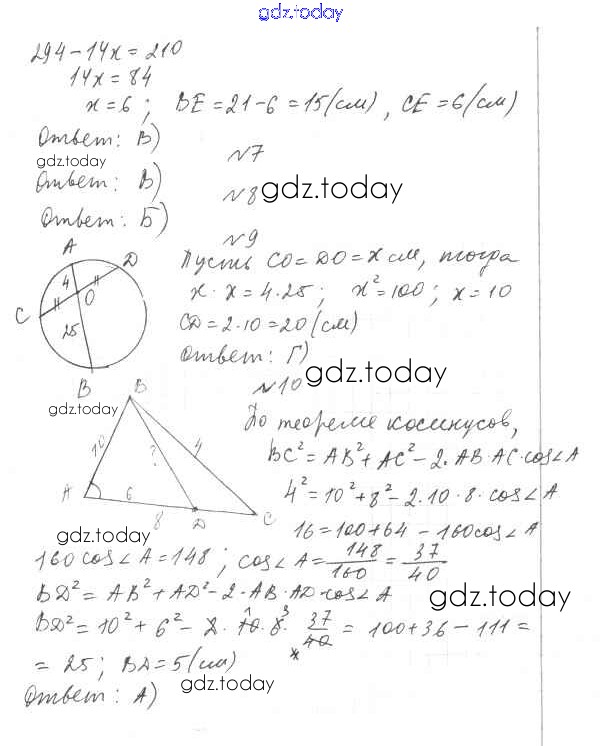 gdz.today
294-14x=210
14x=84
x=6; BE=21-6=15(см), CE=6(см)
Ответ: В)
gdz.today
№7
Ответ: В)
№8 gdz.today
Ответ: Б)
№9
A
D
Пусть CO=DO=x см, тогда
4
O
x·x=4·25; x²=100; x=10
C
25
CD=2·10=20(см)
Ответ: Г)
B
№10 gdz.today
gdz.today
B
По теореме косинусов,
10
?
4
BC²=AB²+AC²-2·AB·AC·cos∠A
A
6
4²=10²+8²-2·10·8·cos∠A
8
D
C
16=100+64-160cos∠A
gdz.today
160cos∠A=148; cos∠A=148/160=37/40
BD²=AB²+AD²-2·AB·AD·cos∠A
gdz.today
BD²=10²+6²-2·10·6·37/40=100+36-111=
=25; BD=5(см)
gdz.today
Ответ: А)